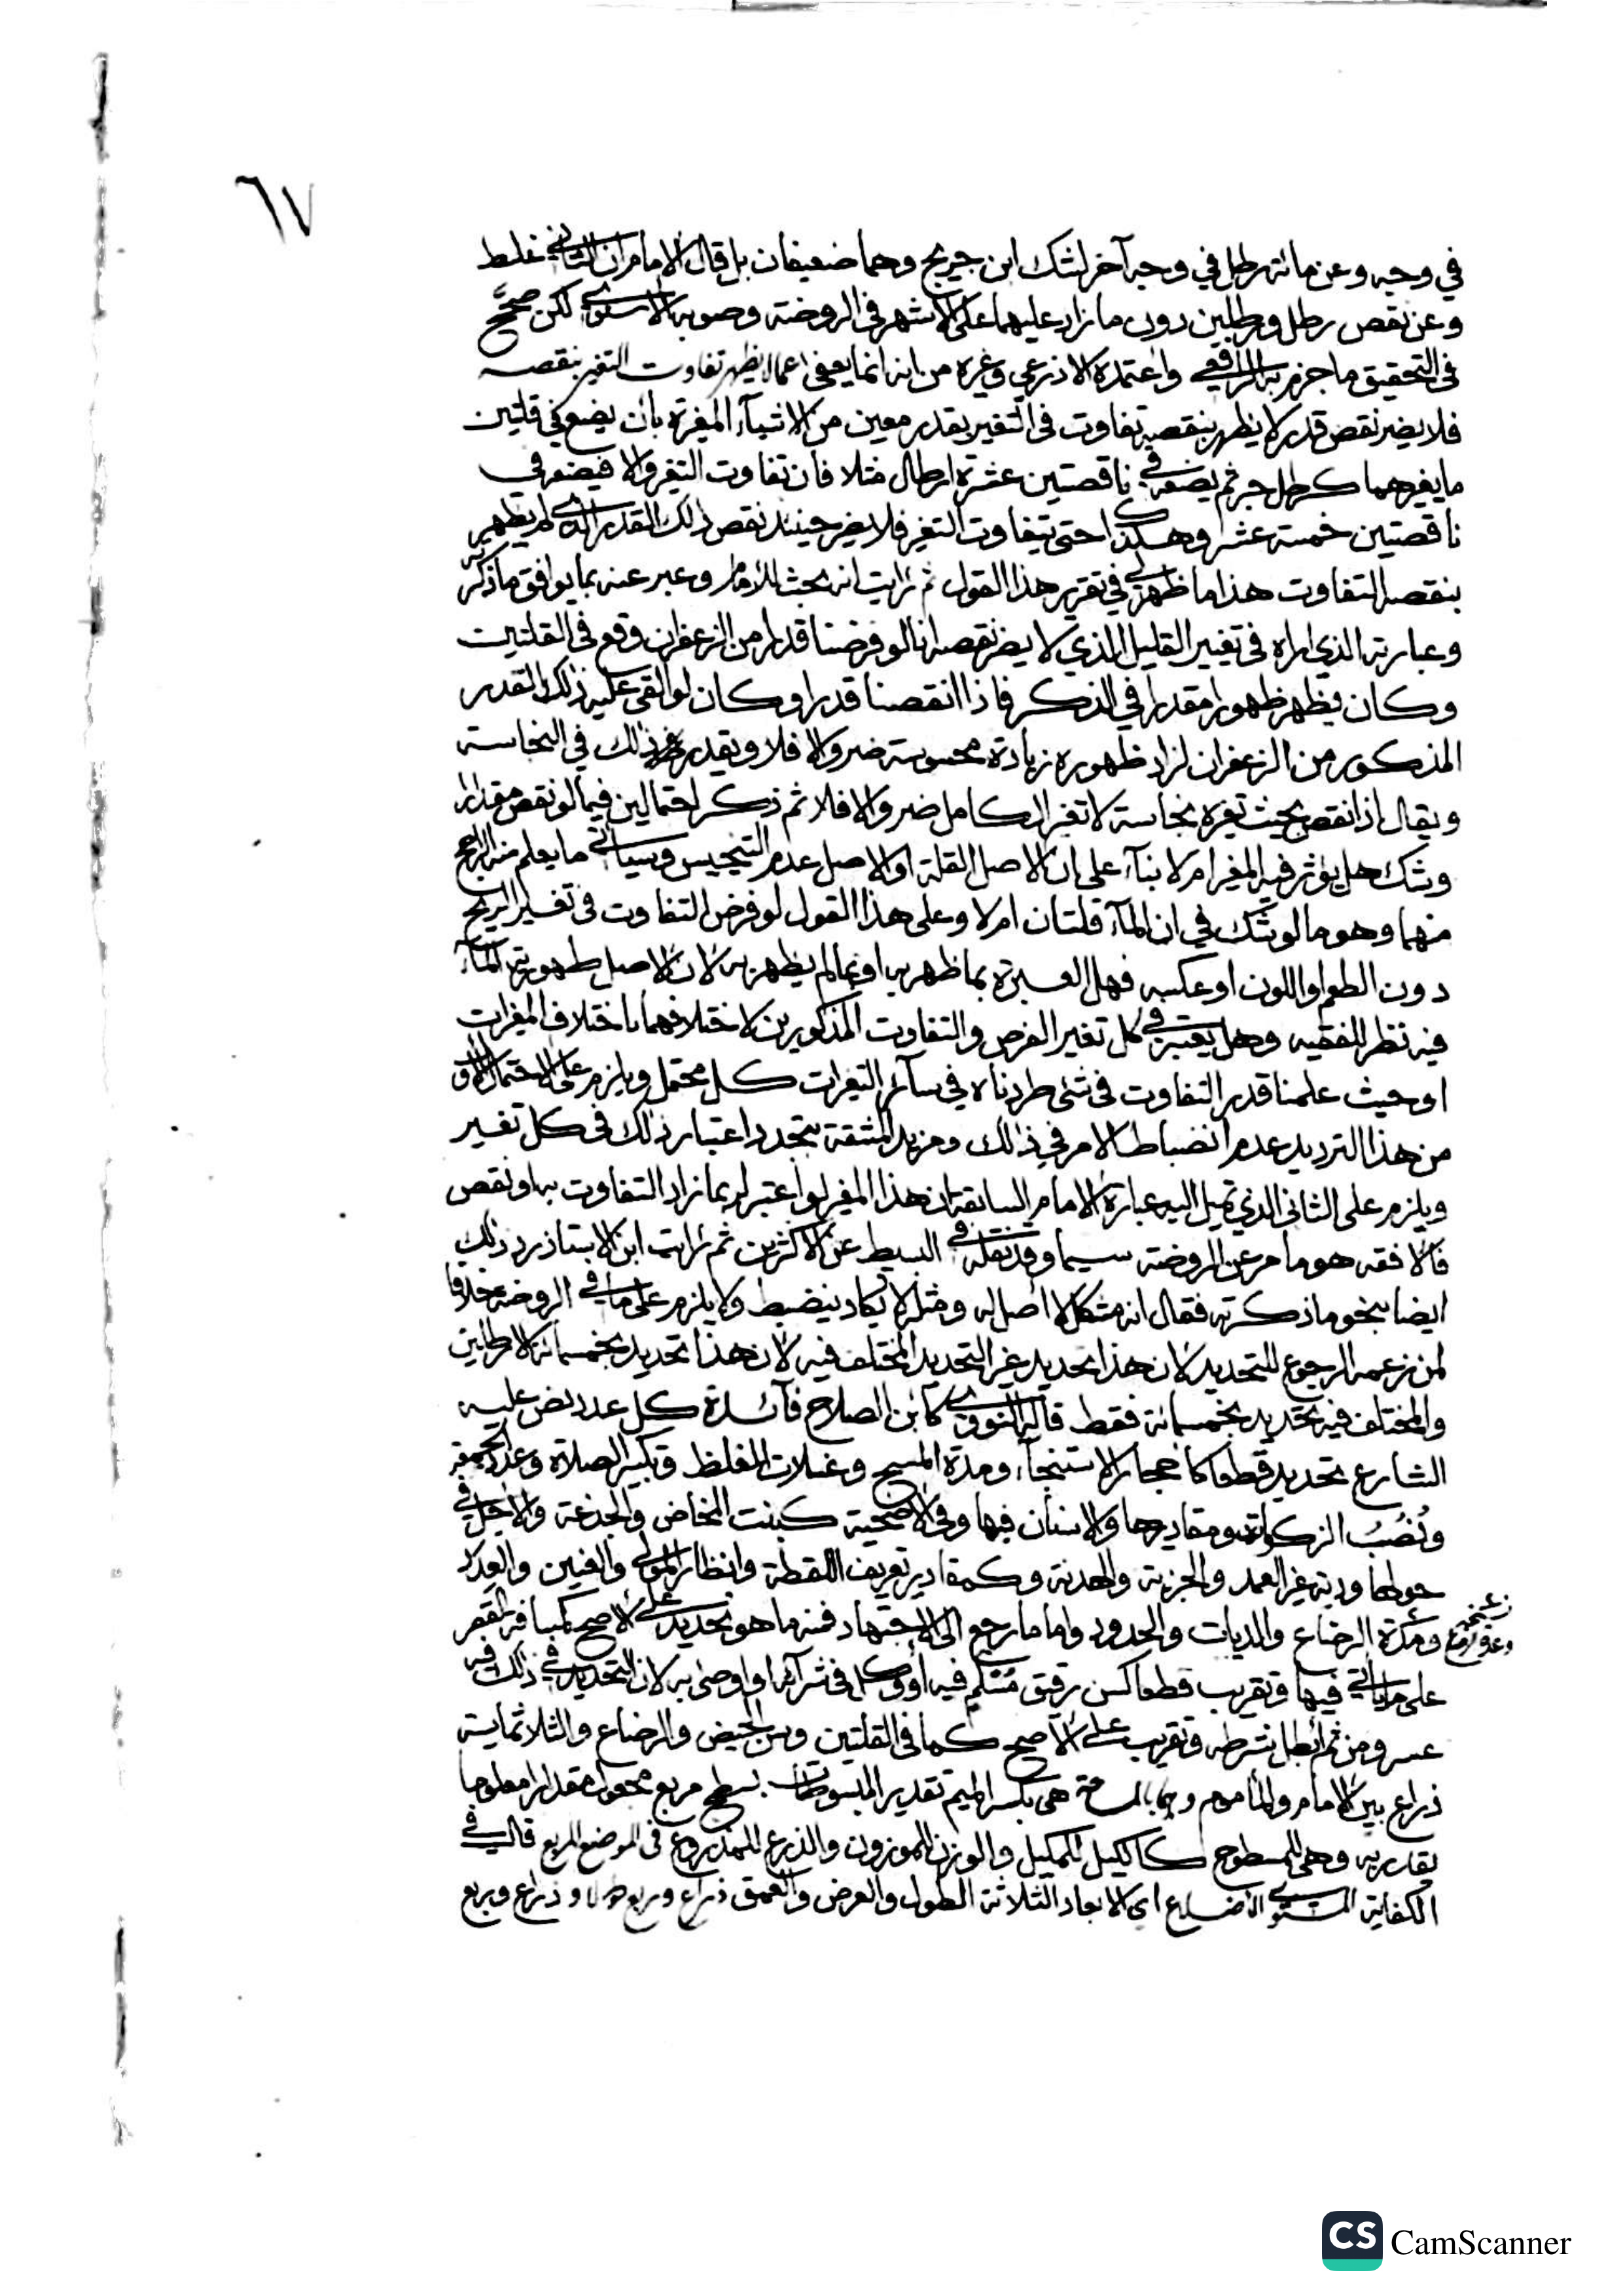 ٦٧
في وجه وعن مائة رطل في وجه آخر لشك ابن جريج وهما ضعيفان بل قال الامام ان الثاني غلط
وعن نقص رطل ورطلين دون ما زاد عليهما على الاشهر في الروضة وصوبه الاسنوي لكن صحَّح
في التحقيق ما جزم به الرافعي واعتمده الاذرعي وغيره من انه انما يعفى عما لا يظهر تفاوت التغير بنقصه
فلا يضر نقص قدر لا يظهر بنقصه تفاوت في التغير بقدر معين من الاشياء المغيرة بان يضع في قلتين
ما يغيرهما كرطل حبر ثم يضعه في ناقصتين عشرة ارطال مثلا فان تفاوت التغير والا فيضعه في
ناقصتين خمسة عشر وهكذا حتى يتفاوت التغير فلا يضر حينئذ نقص ذلك القدر الذي لم يظهر
بنقصه التفاوت هذا ما ظهر لي في تقرير هذا القول ثم رايت انه بحث للامام وعبر عنه بما يوافق ما ذكرته
وعبارته الذي اراه في تغيير القليل الذي لا يضر نقصه انا لو فرضنا قدرا من الزعفران وقع في القلتين
وكان يظهر ظهورا مقدرا في الذكر فاذا انقصنا قدرا وكان لو القي عليه ذلك القدر
المذكور من الزعفران لزاد ظهوره زيادة محسوسة ضر والا فلا ويقدر نحو ذلك في النجاسة
ويقال اذا نقص بحيث تغيره نجاسة لا تغير الكامل ضر والا فلا ثم ذكر احتمالين فيما لو نقص مقدار
وشك هل يؤثر فيه المغير ام لا بناء على ان الاصل القلة او الاصل عدم التنجيس وسياتي ما يعلم منه الراجح
منهما وهو ما لو شك في ان الماء قلتان ام لا وعلى هذا القول لو فرض التفاوت في تغيير الريح
دون الطعم او اللون او عكسه فهل العبرة بما ظهر به او بما لم يظهر به لان الاصل طهورية الماء
فيه نظر للفقيه وهل يعتبر في كل تغير الفرض والتفاوت المذكورين لاختلافهما باختلاف المغيرات
او حيث علمنا قدر التفاوت في شئ طردناه في سائر التغيرات كل محتمل ويلزم على الاحتمال الاول
من هذا الترديد عدم انضباط الامر في ذلك ومزيد المشقة بتجدد اعتبار ذلك في كل تغيير
ويلزم على الثاني الذي تميل اليه عبارة الامام السابقة ان هذا المغير لو اعتبر لربما زاد التفاوت به او نقص
فالافقه هو ما مر عن الروضة سيما وقد نقله في البسيط عن الاكثرين ثم رايت ابن الاستاذ رد ذلك
ايضا بنحو ما ذكرته فقال انه مشكل لا اصل له ومثله لا يكاد ينضبط ولا يلزم على ما في الروضة خلافا
لمن زعمه الرجوع للتحديد لان هذا تحديد غير التحديد المختلف فيه لان هذا تحديد بخمسمائة الا رطلين
والمختلف فيه تحديد بخمسمائة فقط قاله النووي كابن الصلاح فائدة كل عدد نص عليه
الشارع تحديد قطعا كاحجار الاستنجاء ومدة المسح وغسلات المغلظ وتكبير الصلاة وعدد الجمعة
ونُصُب الزكوات ومقاديرها والاسنان فيها وفي الاضحية كبنت المخاض والجذعة والاجل في
حولها ودية غير العمد والجزية والهدنة وكمقادير تعريف اللقطة وانظار المولي والعنين والعِدَد
ومدة الرضاع والديات والحدود واما ما رجع الى الاجتهاد فمنه ما هو تحديد على الاصح كمسافة القصر
على ما ياتي فيها وتقريب قطعا كسن رقيق مُسْلَم فيه او وكل في شرائه او اوصى به لان التحديد في ذلك فيه
عسر ومن ثم ابطل بشرطه وتقريب على الاصح كما في القلتين وسن الحيض والرضاع والثلاثماية
ذراع بين الامام والماموم وهما بالمساحة هي بكسر الميم تقدير المبسوطات بسطح مربع مجعول مقدارا معلوما
تقديريه وهي للمسطوح كالكيل للمكيل والوزن للموزون والذرع للمذروع في الموضع المربع قال في
الكفاية المستوي الاضلاع اي الابعاد الثلاثة الطول والعرض والعمق ذراع وربع طولا وذراع وربع